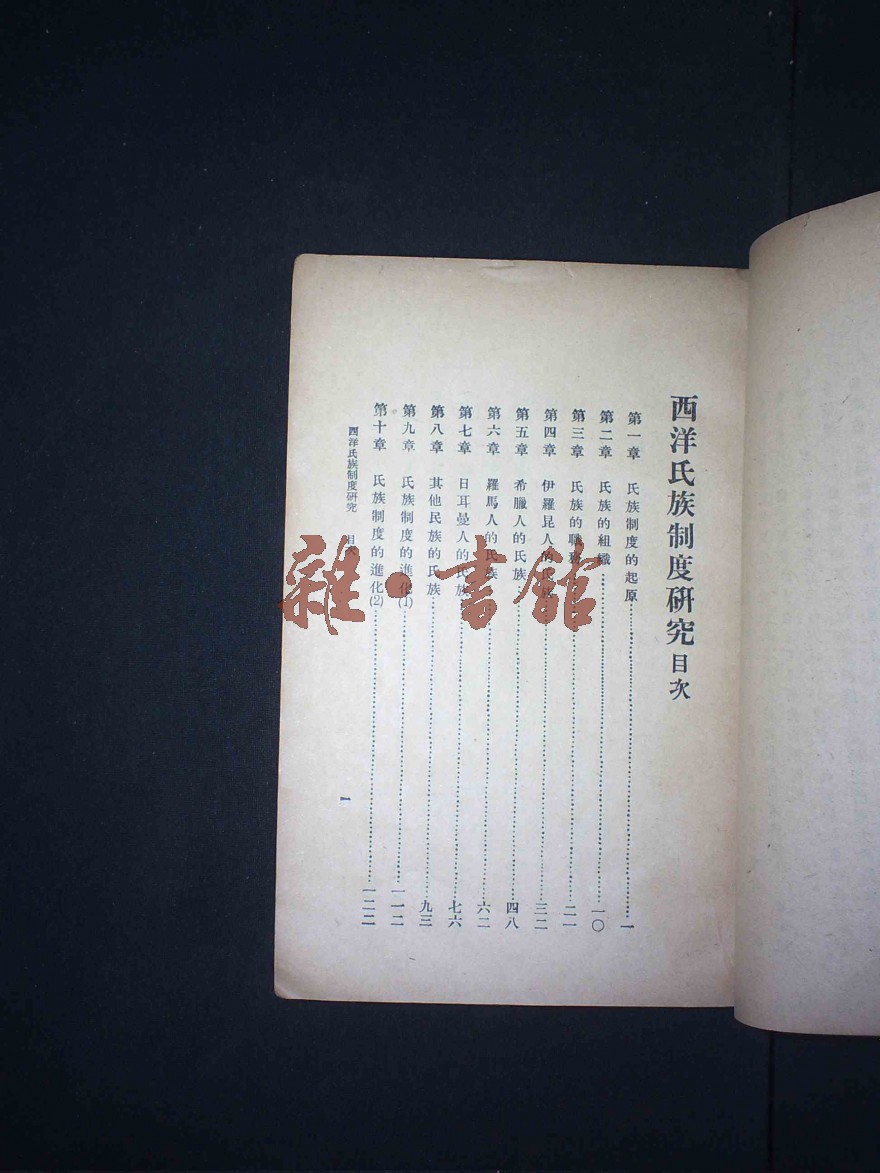 西洋氏族制度研究目次
第一章 氏族制度的起原…………一
第二章 氏族的組織…………一〇
第三章 氏族的職務…………二一
第四章 伊羅昆人的氏族…………三二
第五章 希臘人的氏族…………四八
第六章 羅馬人的氏族…………六二
第七章 日耳曼人的氏族…………七六
第八章 其他民族的氏族…………九三
第九章 氏族制度的進化(1)…………一一二
第十章 氏族制度的進化(2)…………一二二
西洋氏族制度研究 目次
一
雜·書館